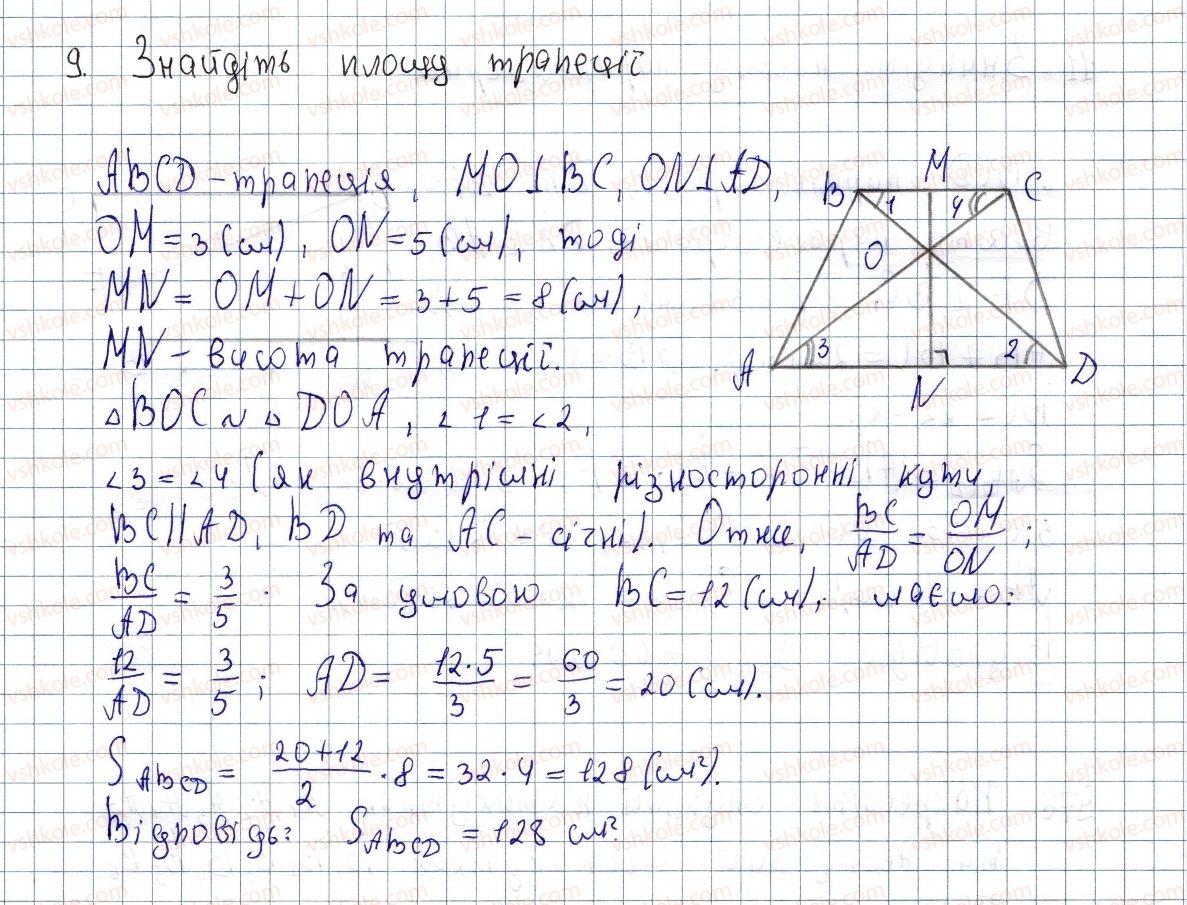 9. Знайдіть площу трапеції
ABCD – трапеція, MO⊥BC, ON⊥AD,
OM = 3 (см), ON = 5 (см), тоді
MN = OM + ON = 3 + 5 = 8 (см),
MN – висота трапеції.
△BOC ~ △DOA, ∠1 = ∠2,
∠3 = ∠4 (як внутрішні різносторонні кути,
BC || AD, BD та AC – січні). Отже, BC/AD = OM/ON;
BC/AD = 3/5. За умовою BC = 12 (см), маємо:
12/AD = 3/5; AD = 12·5/3 = 60/3 = 20 (см).
S ABCD = (20+12)/2 · 8 = 32 · 4 = 128 (см²).
Відповідь: S ABCD = 128 см².
B M C
1 4
O
3 2
A N D
vshkole.com